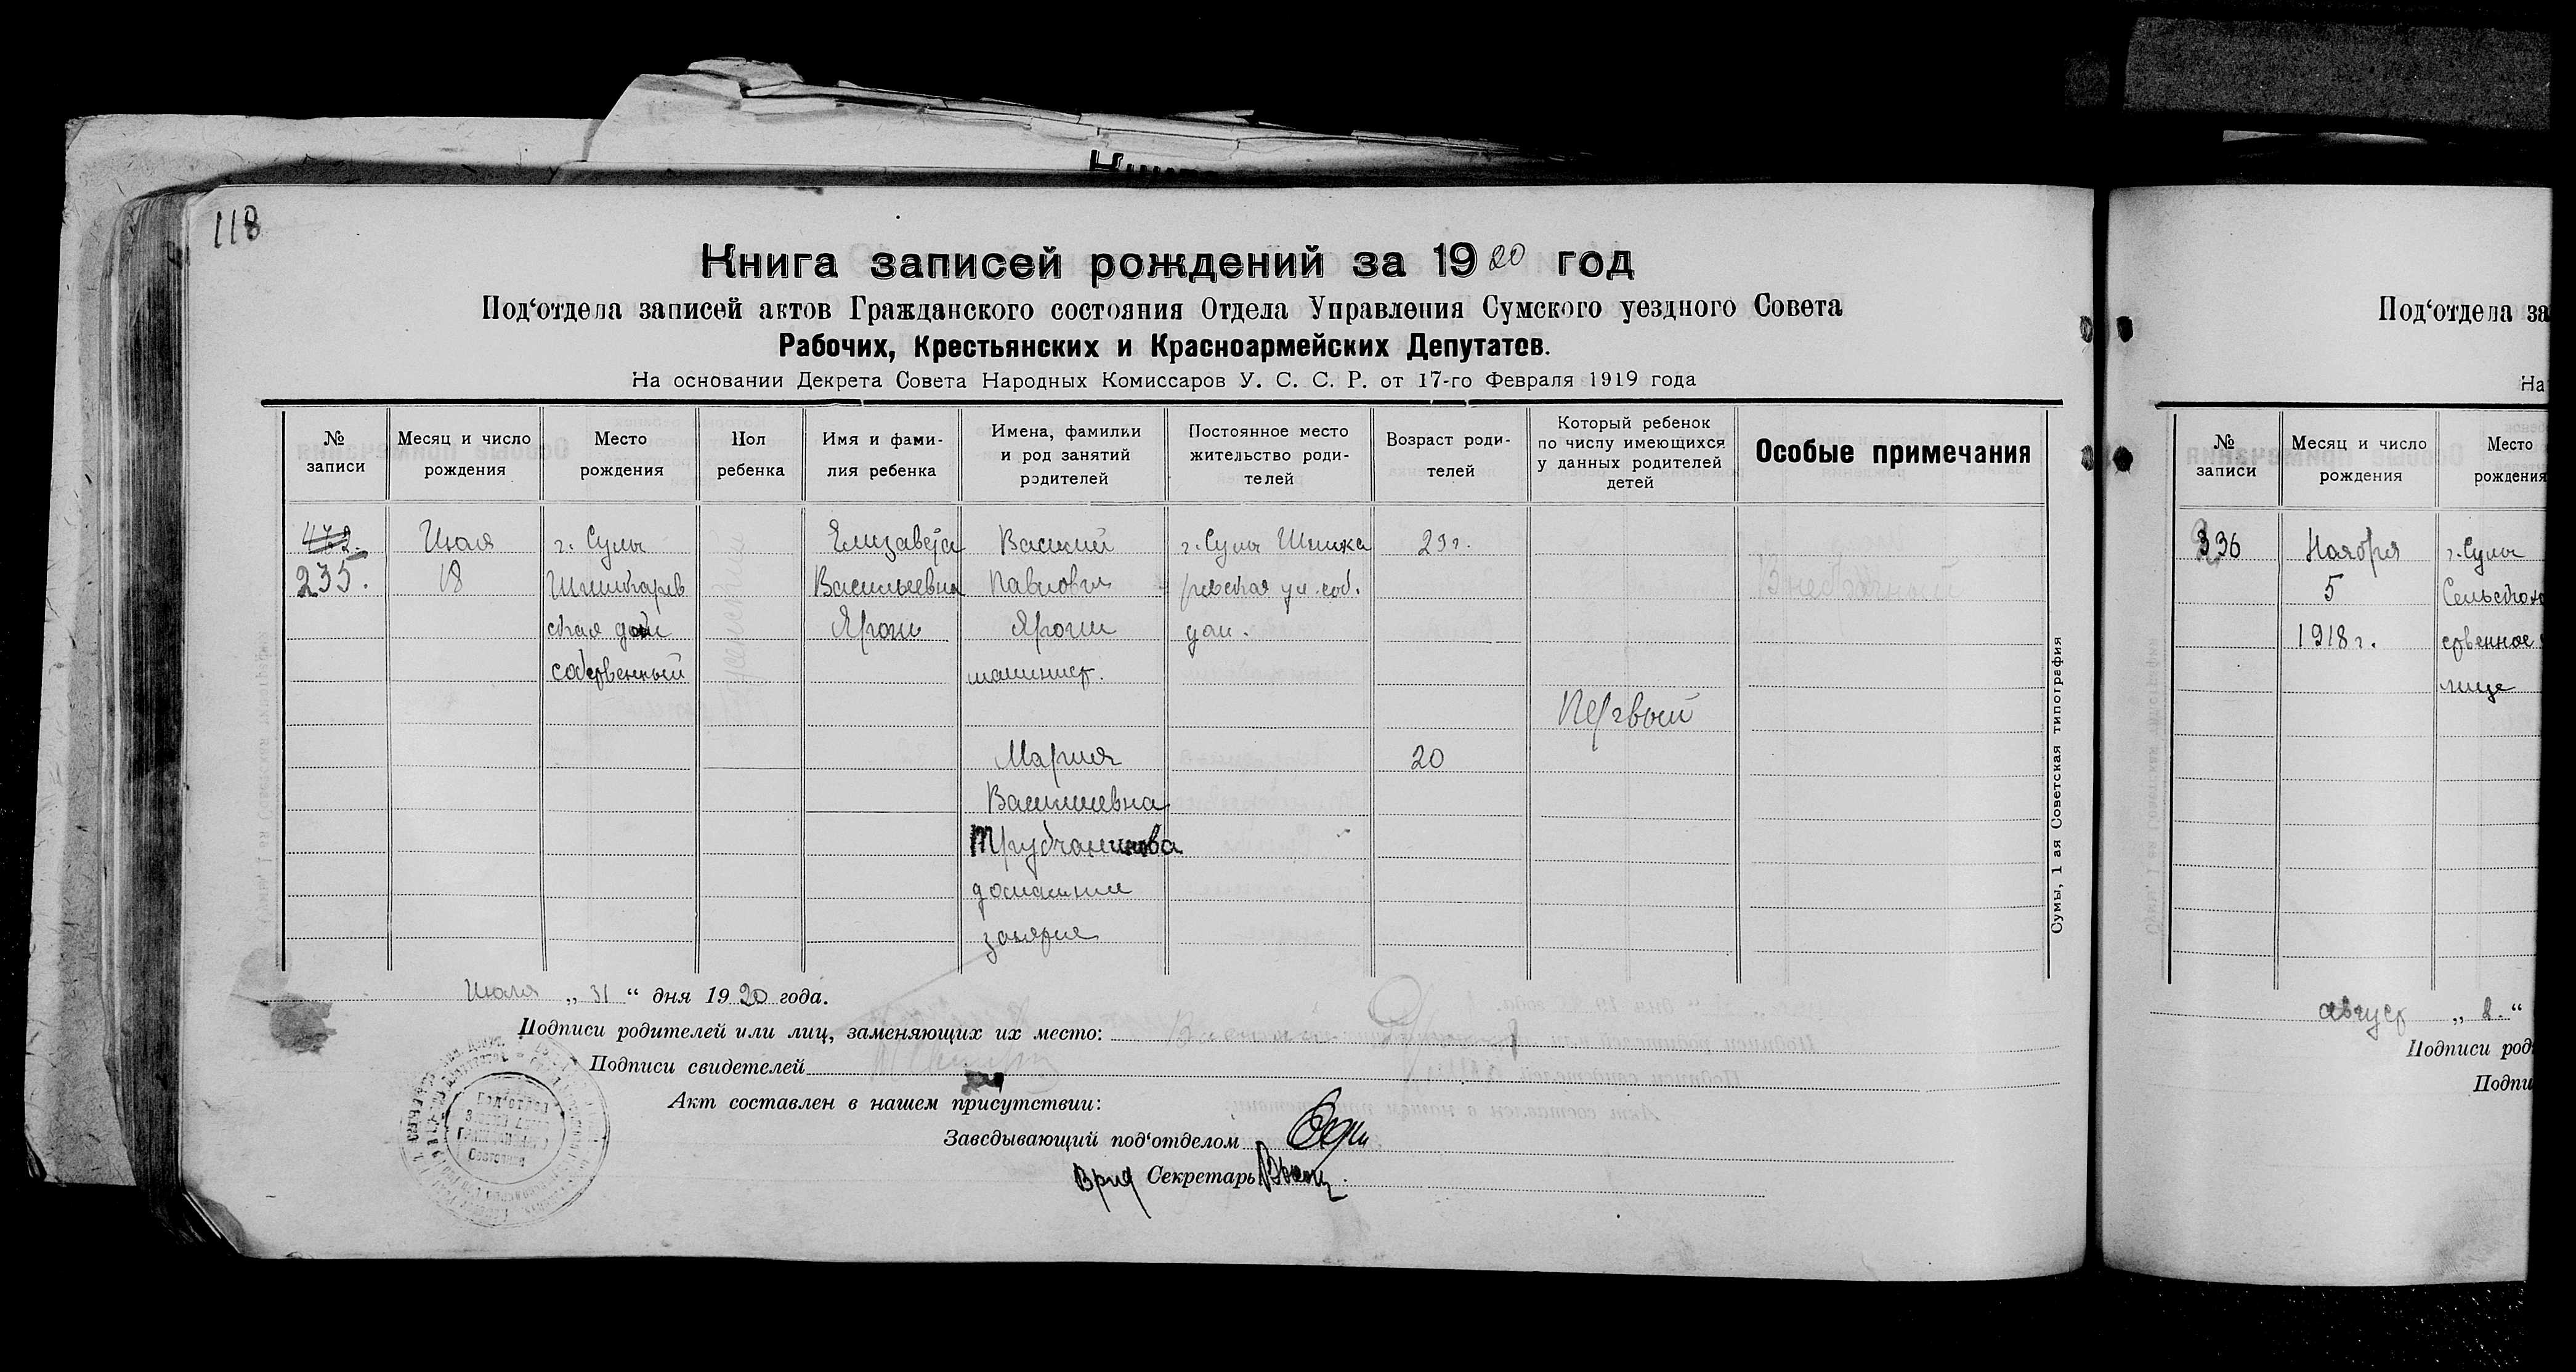 118
Книга записей рождений за 1920 год
Под‘отдела записей актов Гражданского состояния Отдела Управления Сумского уездного Совета
Рабочих, Крестьянских и Красноармейских Депутатов.
На основании Декрета Совета Народных Комиссаров У. С. С. Р. от 17-го Февраля 1919 года
№ записи
Месяц и число рождения
Место рождения
Пол ребенка
Имя и фами-
лия ребенка
Имена, фамилии
и род занятий
родителей
Постоянное место
жительство роди-
телей
Возраст роди-
телей
Который ребенок
по числу имеющихся
у данных родителей
детей
Особые примечания
472.
235.
Июля
18
г. Сумы
Шишкарев
ская дом
собственный
Елизавета
Васильевна
Ярош
Василий
Павлович
Ярош
машинист.
Мария
Васильевна
домашние
занятия
г. Сумы Шишка
ревская ул. соб.
дом.
29 г.
20
Первый
Июля „ 31 “ дня 1920 года.
Подписи родителей или лиц, заменяющих их место:
Подписи свидетелей
Акт составлен в нашем присутствии:
Заведывающий под‘отделом
Врид Секретарь
Сумы, 1 ая Советская типография
Под‘отдел
Состояния
Под‘отдела за
На
№ записи
Месяц и число
рождения
Место
рождения
336
Ноября
5
1918 г.
г. Сумы
Сельскохо
ственное
лище
август „ 8. “
Подписи род
Подпи